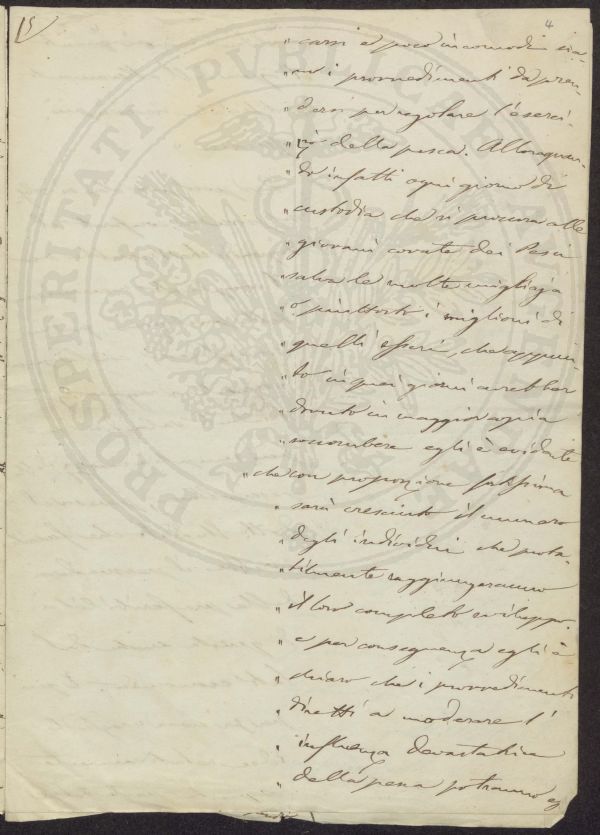 15
4
" carsi e poco incomodi sia-
" no i provvedimenti da pren-
" dersi per regolare l'eserci-
" zio della pesca. Alloraquan-
" do infatti ogni giorno di
" custodia che si procura alle
" giovani covate dei Pesci
" salva le molte migliaja
" o piuttosto i miglioni di
" quelli esseri, che appun-
" to in quei giorni avrebber
" dovuto in maggior copia
" soccombere egli è evidente
" che con proporzione
" sarà cresciuto il numero
" degli individui che proba-
" bilmente raggiungeranno
" il loro completo sviluppo.
" e per conseguenza egli è
" chiaro che i provvedimenti
" diretti a moderare l'
" influenza devastatrice
" della pesca potranno es
PROSPERITATI PUBLICAE